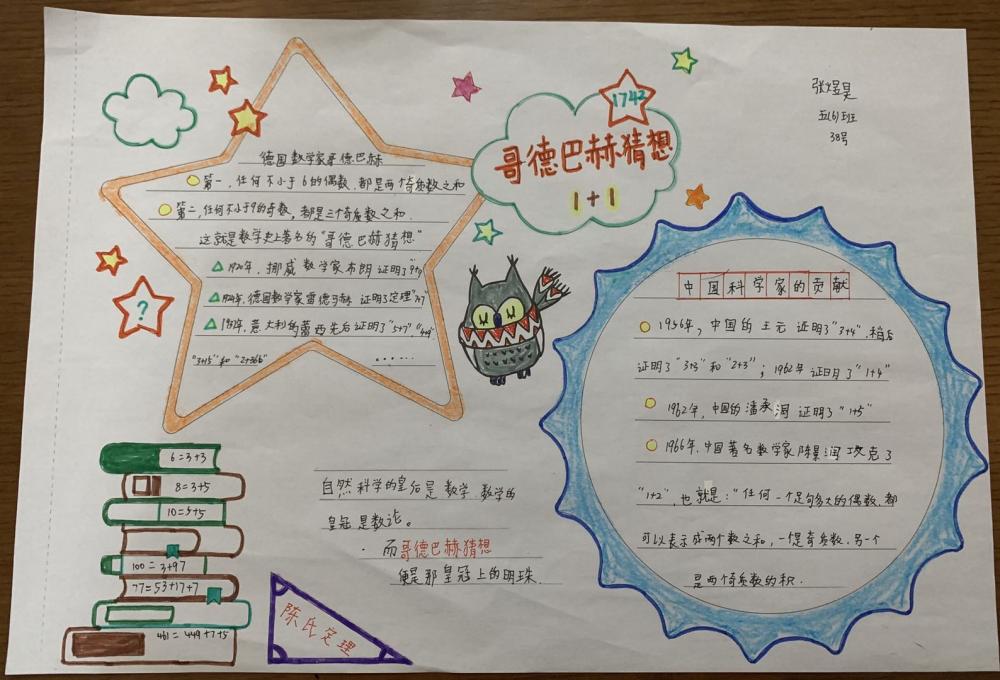 张煜昊
五(6)班
38号
1742
哥德巴赫猜想
1+1
德国数学家哥德巴赫
第一，任何不小于6的偶数，都是两个奇质数之和
第二，任何不小于9的奇数，都是三个奇质数之和．
这就是数学史上著名的"哥德巴赫猜想"
1920年，挪威数学家布朗证明了"9+9
1924年，德国数学家雷德马赫 证明了定理"7+7"
1937年，意大利的蕾西先后证明了"5+7"，"4+9"
"3+15"和"2+366" ······
?
中国科学家的贡献
1956年，中国的王元证明了"3+4"．稍后
证明了"3+3"和"2+3"；1962年证明了"1+4"
1962年，中国的潘承洞证明了"1+5"
1966年，中国著名数学家陈景润攻克了
"1+2"，也就是："任何一个足够多大的偶数，都
可以表示成两个数之和，一个是奇质数．另一个
是两个奇质数的积．
6=3+3
8=3+5
10=5+5
100=3+97
77=53+17+7
461=449+7+5
自然科学的皇后是数学 数学的
皇冠是数论。
·而哥德巴赫猜想
便是那皇冠上的明珠．
陈氏定理